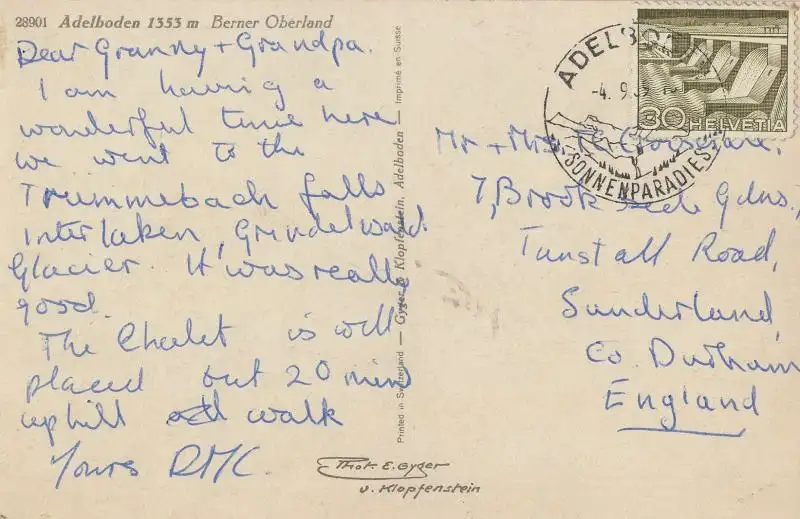 28901 Adelboden 1353 m Berner Oberland
Dear Granny + Grandpa.
I am having a
wonderful time here
we went to the
Trummebach falls
Interlaken, Grindelwald
Glacier. It was really
good.
The Chalet is well
placed but 20 mins
uphill walk
Yours
Printed in Switzerland — Gyger & Klopfenstein, Adelboden — Imprimé en Suisse
Phot. E. Gyger
v. Klopfenstein
ADELBODEN
-4. 9.
SONNENPARADIES
30 HELVETIA
Mr + Mrs
7, Brook Gdns,
Tunstall Road,
Sunderland,
Co. Durham
England